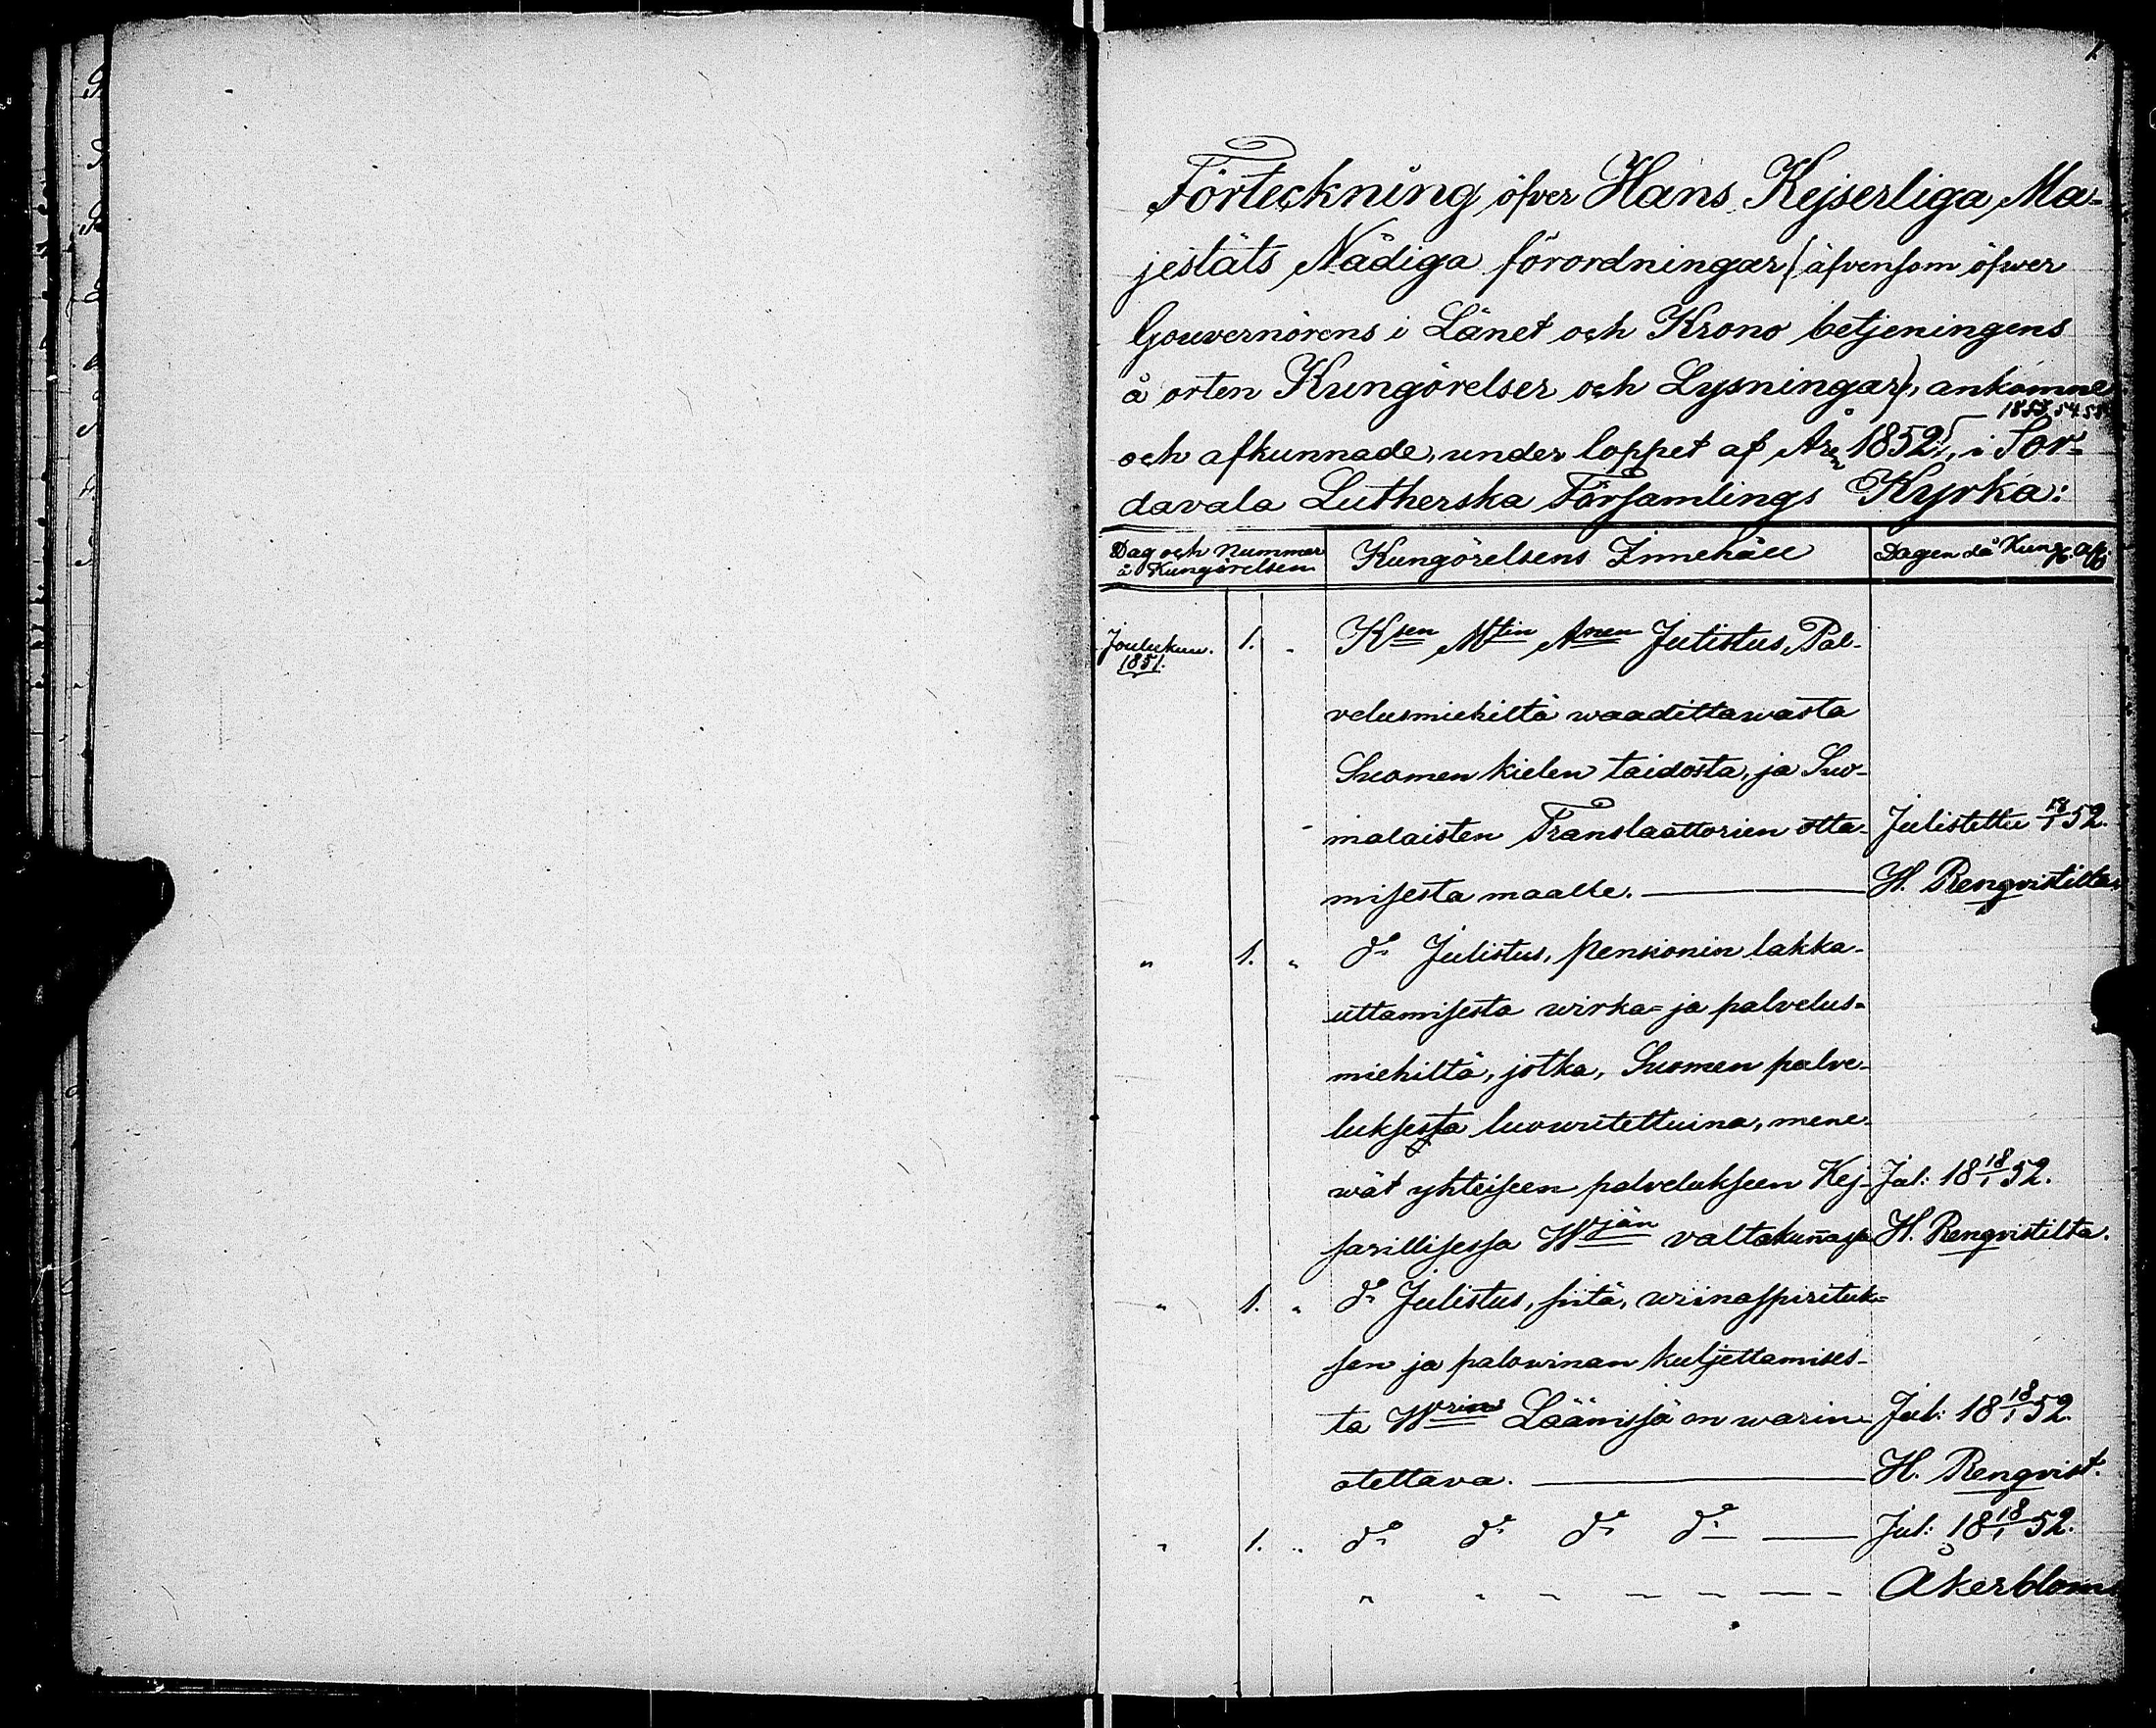 1.
Förteckning öfver Hans Kejserliga Ma-
jestäts Nådiga förordningar (äfvensom öfwer
Gouvernörens i Länet och Krono betjeningens
å orten Kungörelser och Lysningar), ankomne
1853, 54. 55
och afkunnade, under loppet af Åren 1852, i Sor-
davala Lutherska Församlings Kyrka:
Dag och Nummer å Kungörelsen
Kungörelsens Innehåll
Dagen då Kung. afk.
Joulukuu. 1851. 1. " Ksen Mtin Anen Julistus, Pal-
velusmiehiltä waadittawasta
Suomen kielen taidosta, ja Suo-
malaisten Translaattorien otta- Julistettu 18/1 52.
misesta maalle. H. Renqvistilta.
" 1. " do Julistus, pensionin lakka-
uttamisesta wirka- ja palvelus-
miehiltä, jotka, Suomen palve-
luksesta luovutettuina, mene-
wät yhteiseen palvelukseen Kej- Jul: 18 18/1 52.
sarillisessa Wjän valtakunnassa H. Renqvistilta.
" 1. " do Julistus, siitä, wiinaspirituk-
sen ja palowinan kuljettamises-
ta Wrin Läänissä on warin- Jul: 18 18/1 52.
otettava. H. Renqvist.
" 1. " do do do do Jul: 18 18/1 52.
" " " " " Åkerblom